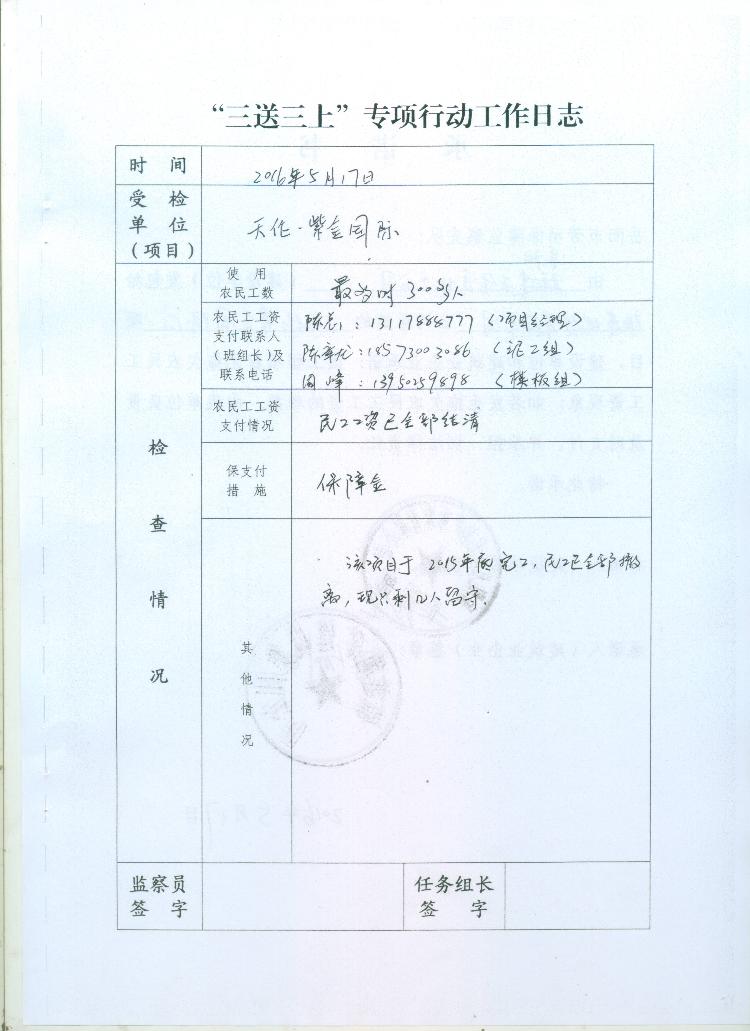 “三送三上”专项行动工作日志
时 间
2016年5月17日
受 检
单 位
(项目)
天伦·紫金国际
使 用
农民工数
最多时 300多人
农民工工资
支付联系人
(班组长)及
联系电话
陈总:13117888777(项目经理)
陈章龙:18573003086(泥工组)
周峰:13950259898(模板组)
农民工工资
支付情况
民工工资已全部结清
保支付
措 施
保障金
检
查
情
况
其
他
情
况
该项目于2015年底完工,民工已全部撤
离,现只剩几人留守.
监察员
签 字
任务组长
签 字